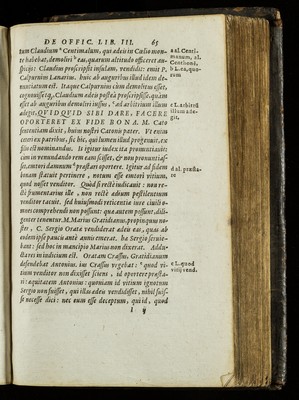 DE OFFIC. LIB. III. 65
tum Claudium Centimalum, qui ædeis in Cælio mon-
te habebat, demoliri eas, quarum altitudo officeret au-
spicijs: Claudius proscripsit insulam, vendidit: emit P.
Calpurnius Lanarius. huic ab auguribus illud idem de-
nuntiatum est. Itaque Calpurnius cum demolitus esset,
cognouissetque, Claudium ædeis postea proscripsisse, quàm
esset ab auguribus demoliri iussus, ad arbitrium illum
adegit, QVIDQVID SIBI DARE, FACERE
OPORTERET EX FIDE BONA. M. Cato
sententiam dixit, huius nostri Catonis pater. Vt enim
ceteri ex patribus, sic hic, qui lumen illud progenuit, ex
filio est nominandus. Is igitur iudex ita pronuntiauit:
cum in venundando rem eam scisset, & non pronuntias-
set, emtori damnum præstari oportere. Igitur ad fidem
bonam statuit pertinere, notum esse emtori vitium,
quod nosset venditor. Quod si rectè iudicauit: non re-
ctè frumentarius ille, non rectè ædium pestilentium
venditor tacuit. sed huiusmodi reticentiæ iure ciuili o-
mnes comprehendi non possunt: quæ autem possunt, dili-
genter tenentur. M. Marius Gratidianus, propinquus no-
ster, C. Sergio Oratæ vendiderat ædeis eas, quas ab
eodem ipse paucis antè annis emerat. hæ Sergio seruie-
bant: sed hoc in mancipio Marius non dixerat. Addu-
cta res in iudicium est. Oratam Crassus, Gratidianum
defendebat Antonius. ius Crassus vrgebat: quod vi-
tium venditor non dixisset sciens, id oportere præsta-
ri: æquitatem Antonius: quoniam id vitium ignotum
Sergio non fuisset, qui illas ædeis vendidisset, nihil fuis-
se necesse dici: nec eum esse deceptum, qui id, quod
I ij
a al. Centi-
manum, al.
b L. ea, quo-
rum
c L. arbitrũ
illum ade-
git,
d al. præsta-
re
e L. quod
vitij vend.